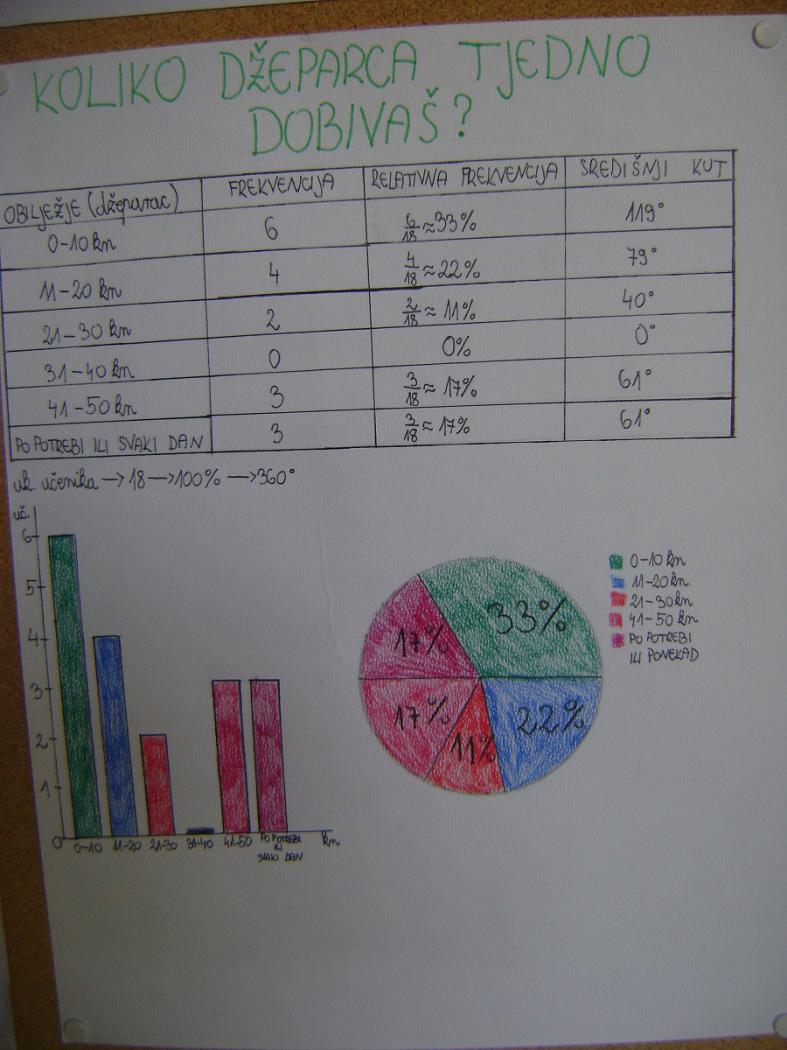 KOLIKO DŽEPARCA TJEDNO
DOBIVAŠ?
OBILJEŽJE (džeparac) FREKVENCIJA RELATIVNA FREKVENCIJA SREDIŠNJI KUT
0-10 kn 6 6/18 ≈ 33% 119°
11-20 kn 4 4/18 ≈ 22% 79°
21-30 kn 2 2/18 ≈ 11% 40°
31-40 kn 0 0% 0°
41-50 kn 3 3/18 ≈ 17% 61°
PO POTREBI ILI SVAKI DAN 3 3/18 ≈ 17% 61°
uk. učenika → 18 → 100% → 360°
uč.
6
5
4
3
2
1
0
0-10 11-20 21-30 31-40 41-50 PO POTREBI kn
ILI
SVAKI DAN
33%
17%
17%
11%
22%
0-10 kn
11-20 kn
21-30 kn
41-50 kn
PO POTREBI
ILI PONEKAD